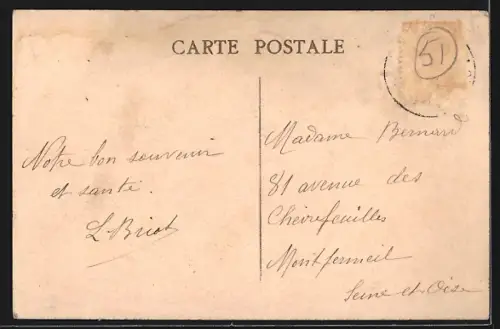 CARTE POSTALE
51
Notre bon souvenir
et santé.
L Briot
Madame Bernard
81 avenue des
Chèvrefeuilles
Montfermeil
Seine et Oise